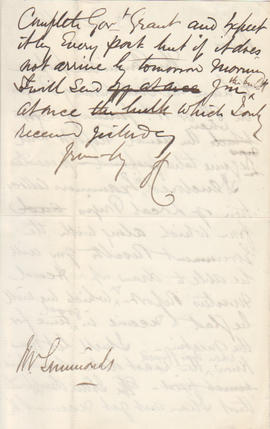 Complete Gov.t Grant and expect
it by Every post but if it does
not arrive by tomorrow morning
I will Send you the bulk
at once which I only
received yesterday
Yours truly
Mr Simmonds